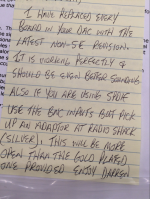 I HAVE REPLACED EVERY
BOARD IN YOUR DAC WITH THE
LATEST NON-SE REVISION.
IT IS WORKING PERFECTLY &
SHOULD BE EVEN BETTER SOUNDING
ALSO IF YOU ARE USING SPDIF
USE THE BNC INPUTS BUT PICK
UP AN ADAPTOR AT RADIO SHACK
(SILVER). THIS WILL BE MORE
OPEN THAN THE GOLD PLATED
ONE PROVIDED ENJOY DARREN